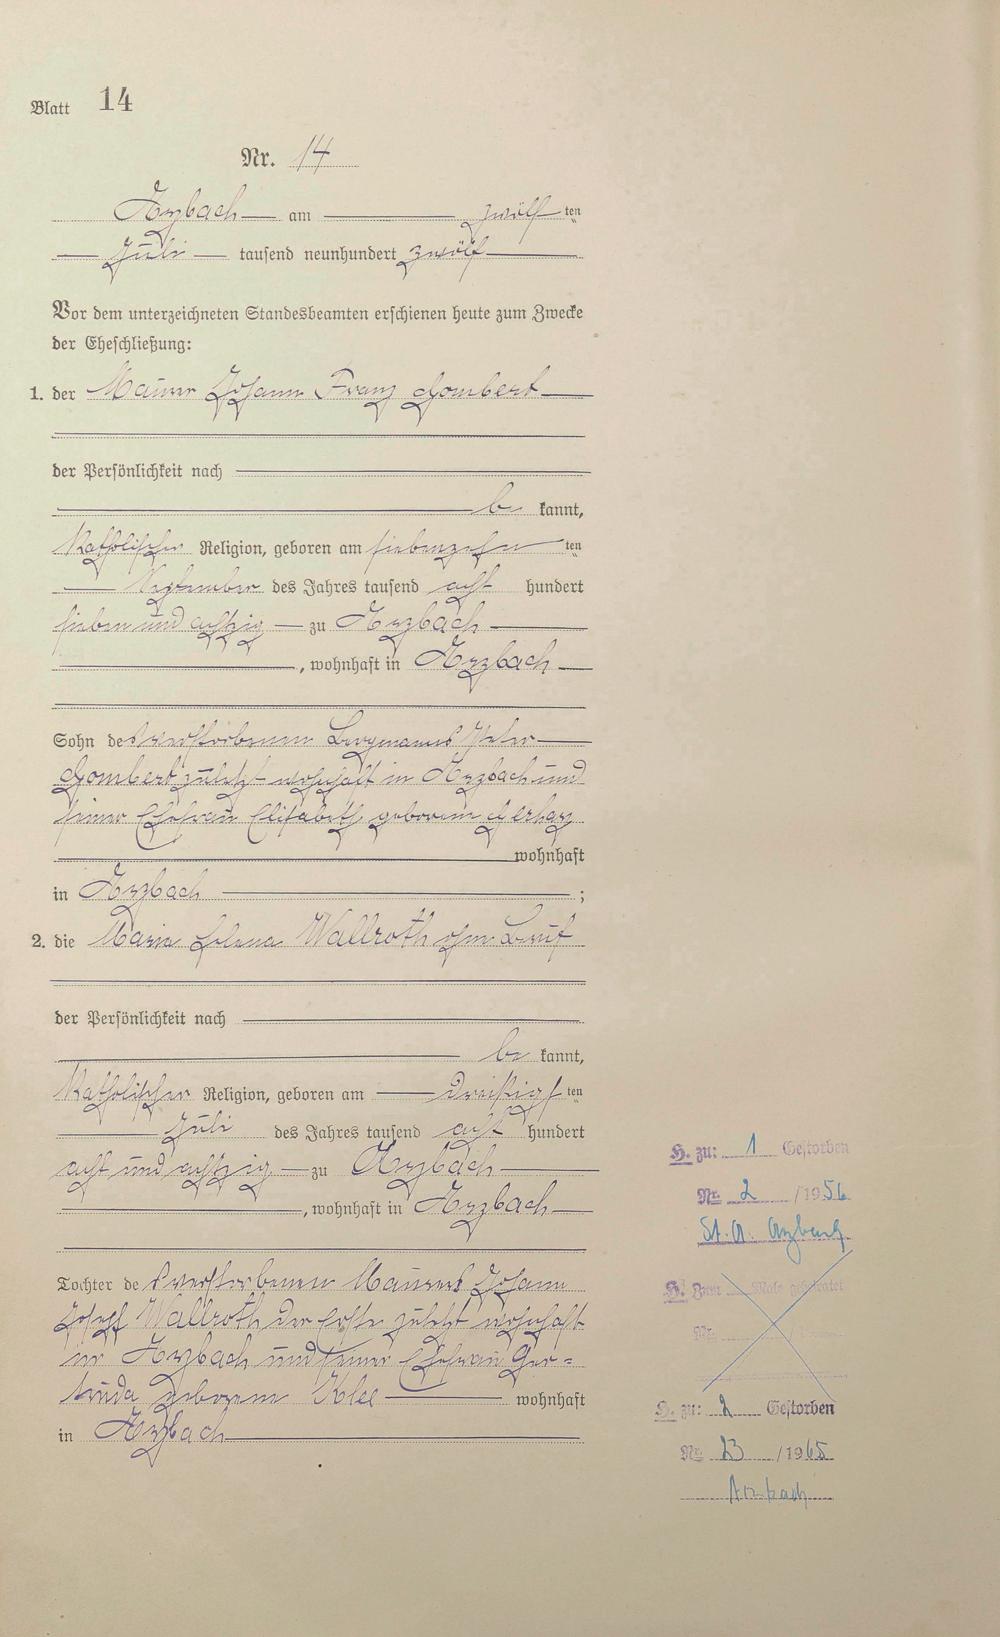 Blatt 14
Nr. 14
Arzbach am zwölf ten
Juli tausend neunhundert zwölf
Vor dem unterzeichneten Standesbeamten erschienen heute zum Zwecke
der Eheschließung:
1. der Maurer Johann Franz Gombert
der Persönlichkeit nach
be kannt,
Katholischer Religion, geboren am siebenzehn ten
September des Jahres tausend acht hundert
sieben und achtzig zu Arzbach
, wohnhaft in Arzbach
Sohn des verstorbenen Bergmanns Peter
Gombert zuletzt wohnhaft in Arzbach und
seiner Ehefrau Elisabeth geborene Gerharz
wohnhaft
in Arzbach ;
2. die Maria Helena Wallroth ohne Beruf
der Persönlichkeit nach
be kannt,
Katholischer Religion, geboren am dreißigs ten
Juli des Jahres tausend acht hundert
acht und achtzig zu Arzbach
, wohnhaft in Arzbach
Tochter des verstorbenen Maurers Johann
Josef Wallroth der Erste zuletzt wohnhaft
in Arzbach und seiner Ehefrau Ger=
truda geborene Klee wohnhaft
in Arzbach
H. zu: 1 Gestorben
Nr. 2 /1956
St. A. Arzbach
H. Zum Male geheiratet
Nr.
H. zu: 2 Gestorben
Nr. 23 /1965
Arzbach